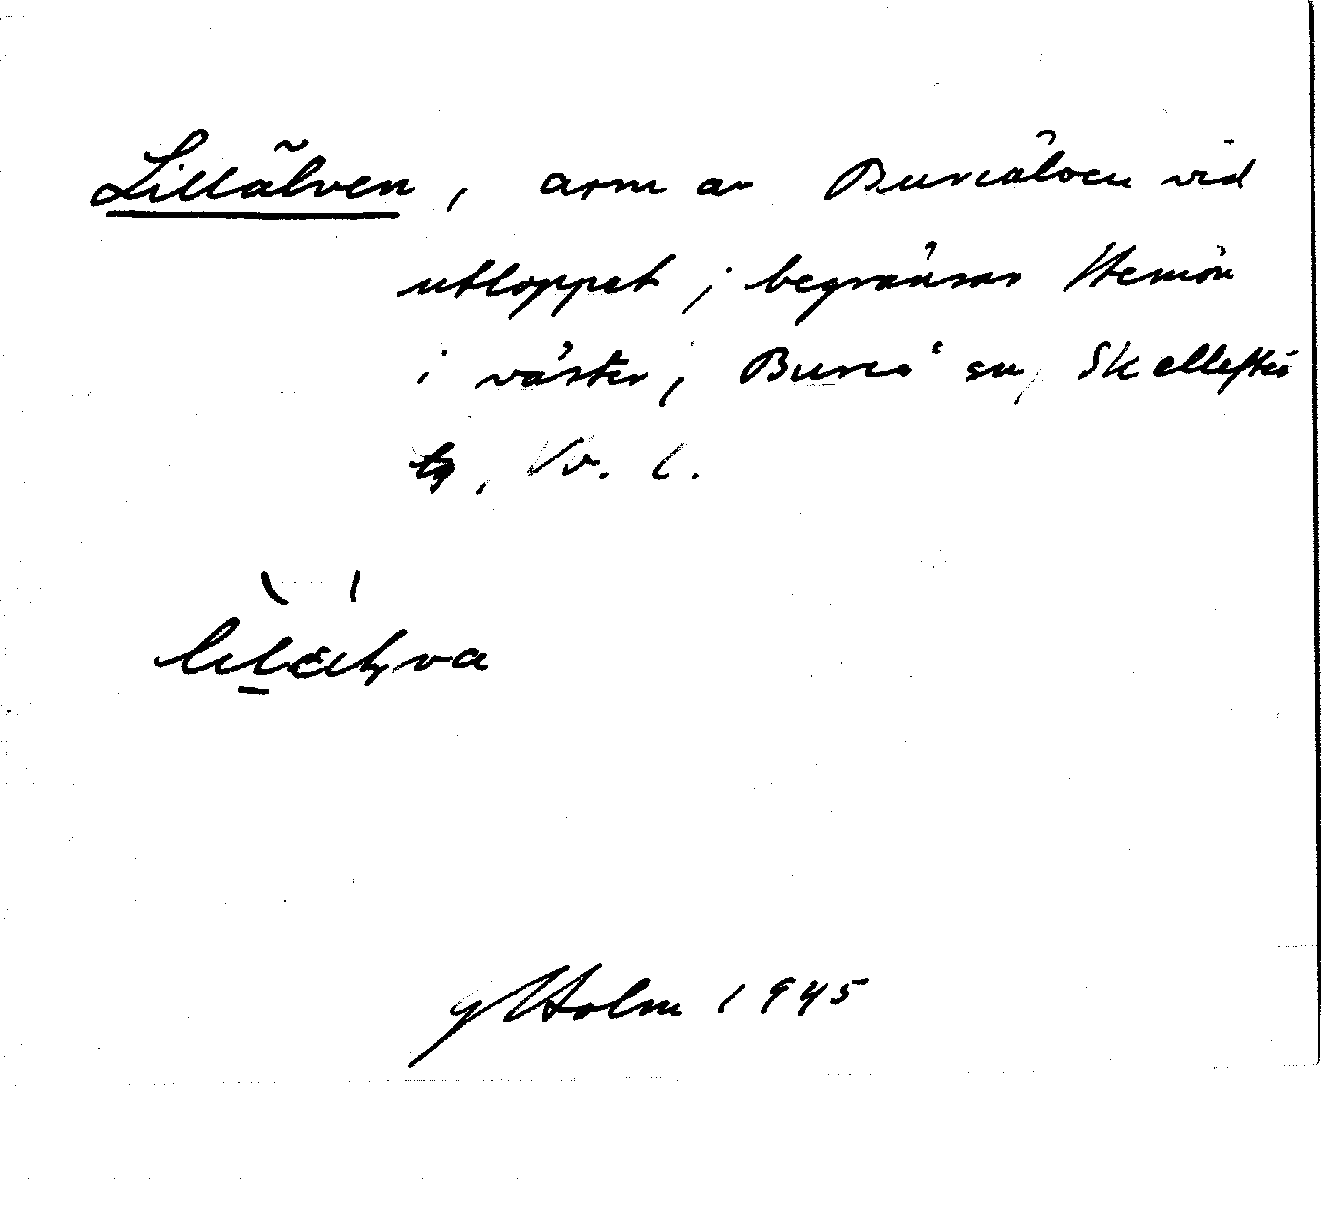 Lillälven, arm av Bureälven vid
utloppet; begränsar Hemön
i väster; Bureå sn, Skellefteå
tg, Vb. l.
G Holm 1945